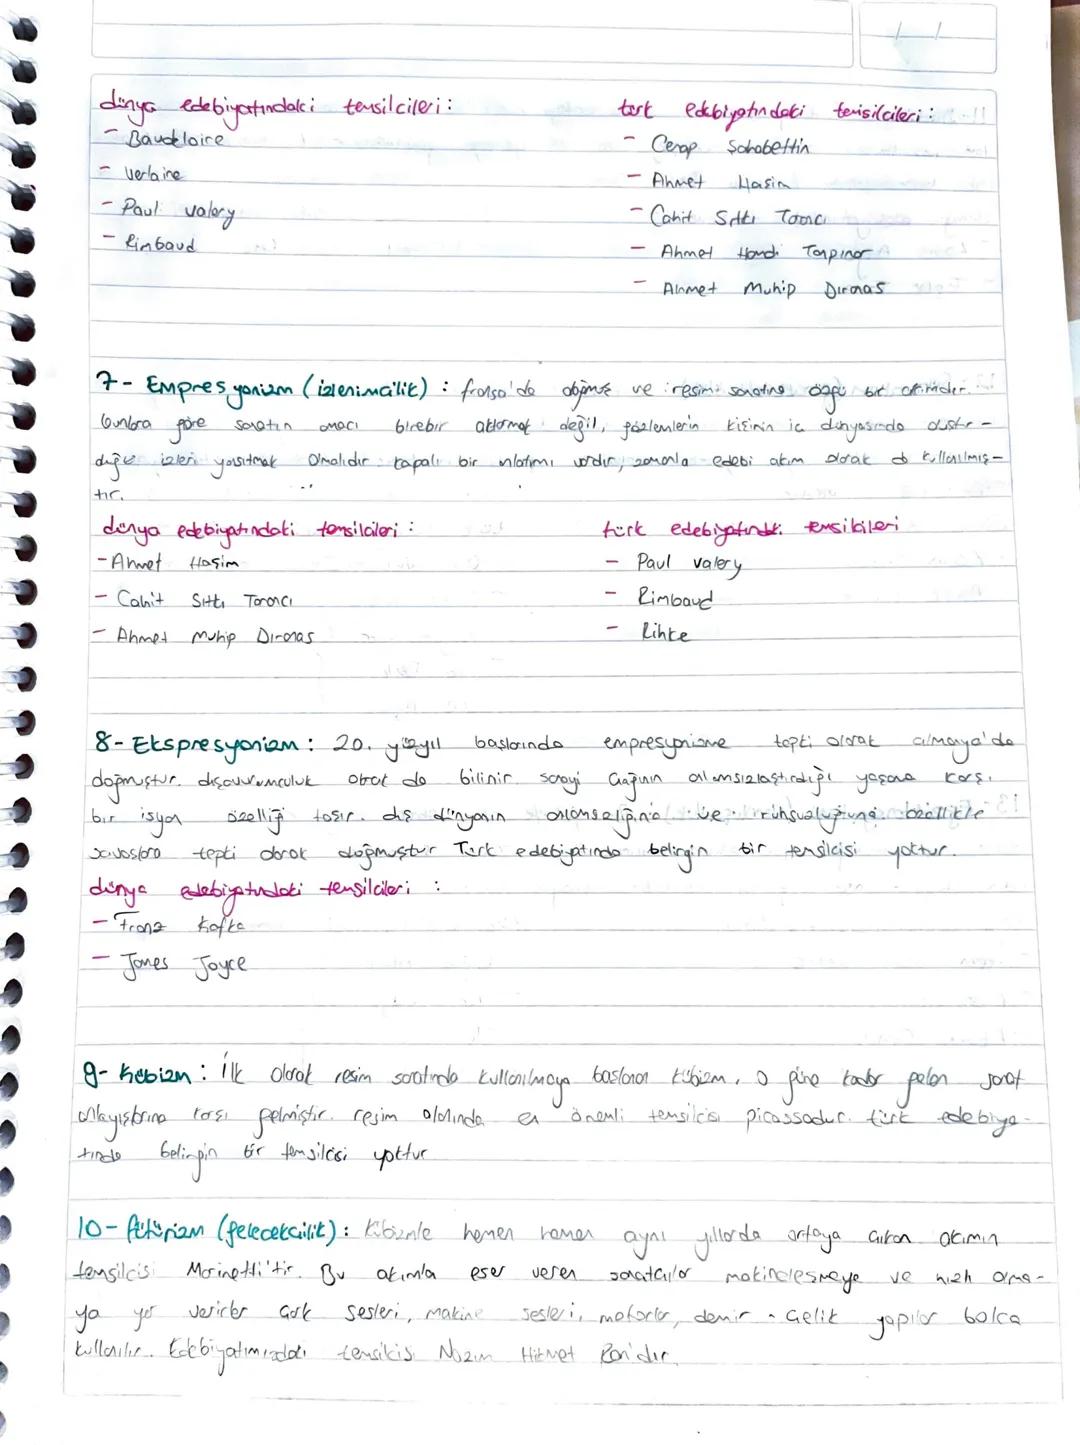 dünya edebiyatındaki temsilcileri :
- Baudelaire
- Verlaine
- Paul valery
- Rimbaud
türk edebiyatındaki temsilcileri :
- Cenap Şahabettin
- Ahmet Haşim
- Cahit Sıtkı Tarancı
- Ahmet Hamdi Tanpınar
- Ahmet Muhip Dıranas
7- Empresyonizm (izlenimcilik) : fransa'da doğmuş ve resim sanatına özgü bir akımdır.
bunlara göre sanatın amacı birebir aktarmak değil, gözlemlerin kişinin iç dünyasında oluştur-
duğu izleri yansıtmak olmalıdır. kapalı bir anlatımı vardır, zamanla edebi akım olarak da kullanılmış-
tır.
dünya edebiyatındaki temsilcileri :
- Ahmet Haşim
- Cahit Sıtkı Tarancı
- Ahmet Muhip Dıranas
türk edebiyatındaki temsilcileri
- Paul valery
- Rimbaud
- Rilke
8- Ekspresyonizm : 20. yüzyıl başlarında empresyonizme tepki olarak almanya'da
doğmuştur. dışavurumculuk olarak da bilinir. sanayi çağının anlamsızlaştırdığı yaşama karşı
bir isyan özelliği taşır. dış dünyanın anlamsızlığına ve ruhsuzluğuna özellikle
savaşlara tepki olarak doğmuştur Türk edebiyatında belirgin bir temsilcisi yoktur.
dünya edebiyatındaki temsilcileri :
- Franz Kafka
- James Joyce
9- Kübizm : İlk olarak resim sanatında kullanılmaya başlanan kübizm, o güne kadar gelen sanat
anlayışlarına karşı gelmiştir. resim alanında en önemli temsilcisi picassodur. türk edebiya-
tında belirgin bir temsilcisi yoktur
10- fütürizm (gelecekçilik) : Kübizmle hemen hemen aynı yıllarda ortaya çıkan akımın
temsilcisi Marinetti'tir. Bu akımla eser veren sanatçılar makineleşmeye ve hızlı olma-
ya yer verirler Çark sesleri, makine sesleri, motorlar, demir - çelik yapılar bolca
kullanılır. Edebiyatımızdaki temsilcisi Nazım Hikmet Ran'dır.